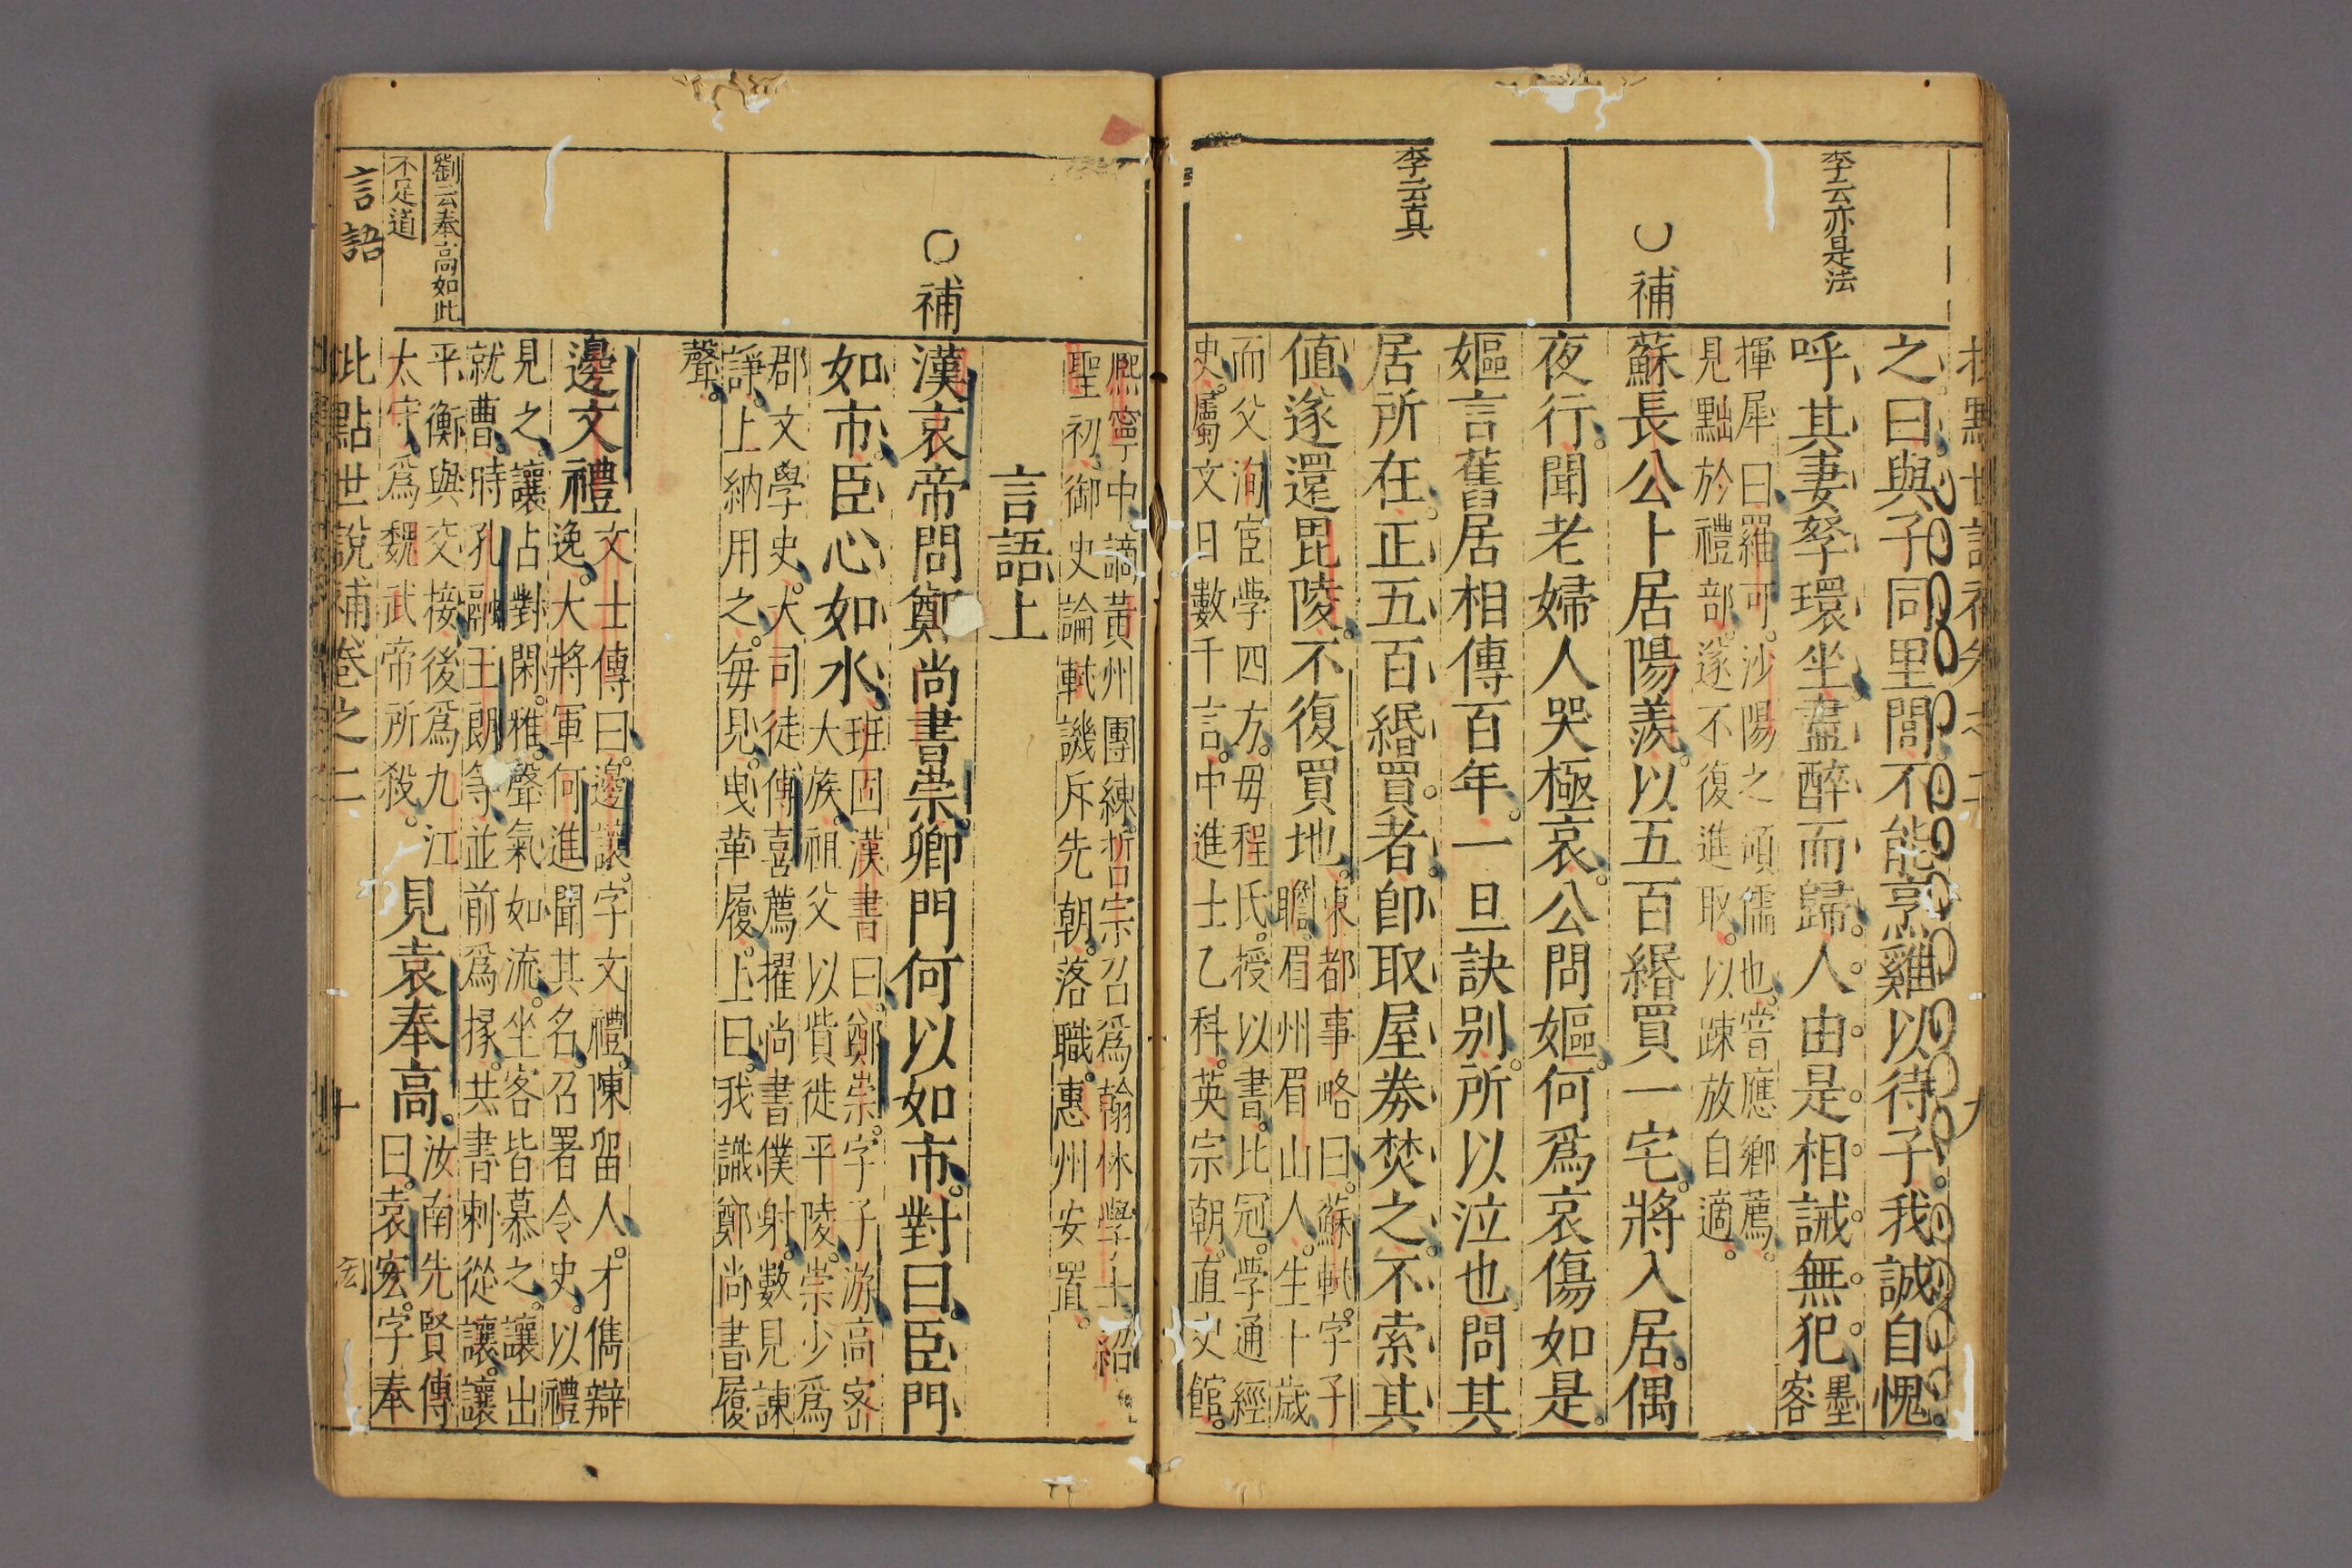 李云亦是法
○補
李云真
之曰與子同里閈不能烹雞以待子我誠自愧
呼其妻孥環坐盡醉而歸人由是相誡無犯墨客
揮犀曰羅可沙陽之碩儒也嘗應鄉薦
見黜於禮部遂不復進取以疎放自適
蘇長公卜居陽羨以五百緡買一宅將入居偶
夜行聞老婦人哭極哀公問嫗何爲哀傷如是
嫗言舊居相傳百年一旦訣别所以泣也問其
居所在正五百緡買者卽取屋券焚之不索其
值遂還毘陵不復買地
東都事略曰蘇軾字子
瞻眉州眉山人生十歲
而父洵宦學四方毋程氏授以書比冠學通經
史屬文日數千言中進士乙科英宗朝直史館
○補
劉云奉高如此
不足道
熙寧中謫黃州團練哲宗召爲翰林學士紹
聖初御史論軾譏斥先朝落職惠州安置
言語上
漢哀帝問鄭尚書崇卿門何以如市對曰臣門
如市臣心如水
班固漢書曰鄭崇字子游高密
大族祖父以貲徙平陵崇少爲
郡文學史大司徒傅喜薦擢尚書僕射數見諫
諍上納用之每見曳革履上曰我識鄭尚書履
聲
邊文禮
文士傳曰邊讓字文禮陳留人才儁辯
逸大將軍何進聞其名召署令史以禮
見之讓占對閑雅聲氣如流坐客皆慕之讓出
就曹時孔融王朗等並前爲掾共書刺從讓讓
平衡與交接後爲九江
太守爲魏武帝所殺
見袁奉高
汝南先賢傳
曰袁宏字奉
言語
批點世說補卷之二
十